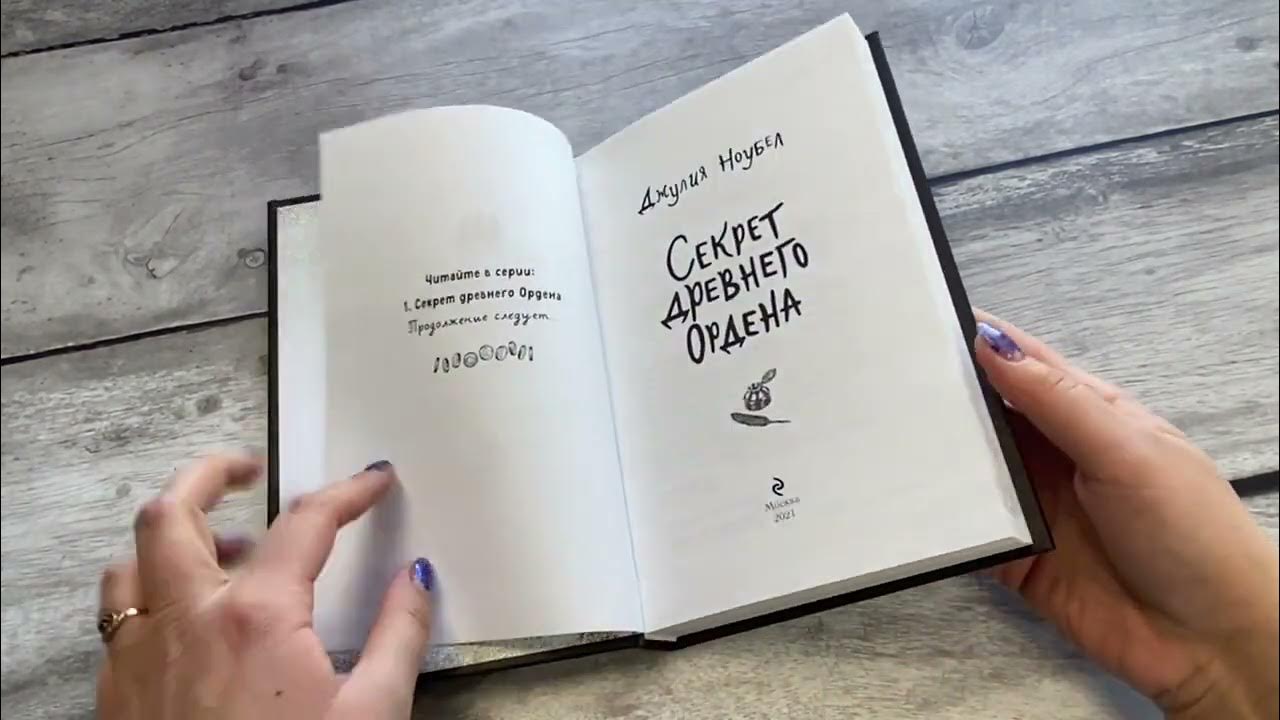 Читайте в серии:
1. Секрет древнего Ордена
Продолжение следует...
Джулия Ноубел
Секрет
древнего
Ордена
Москва
2021